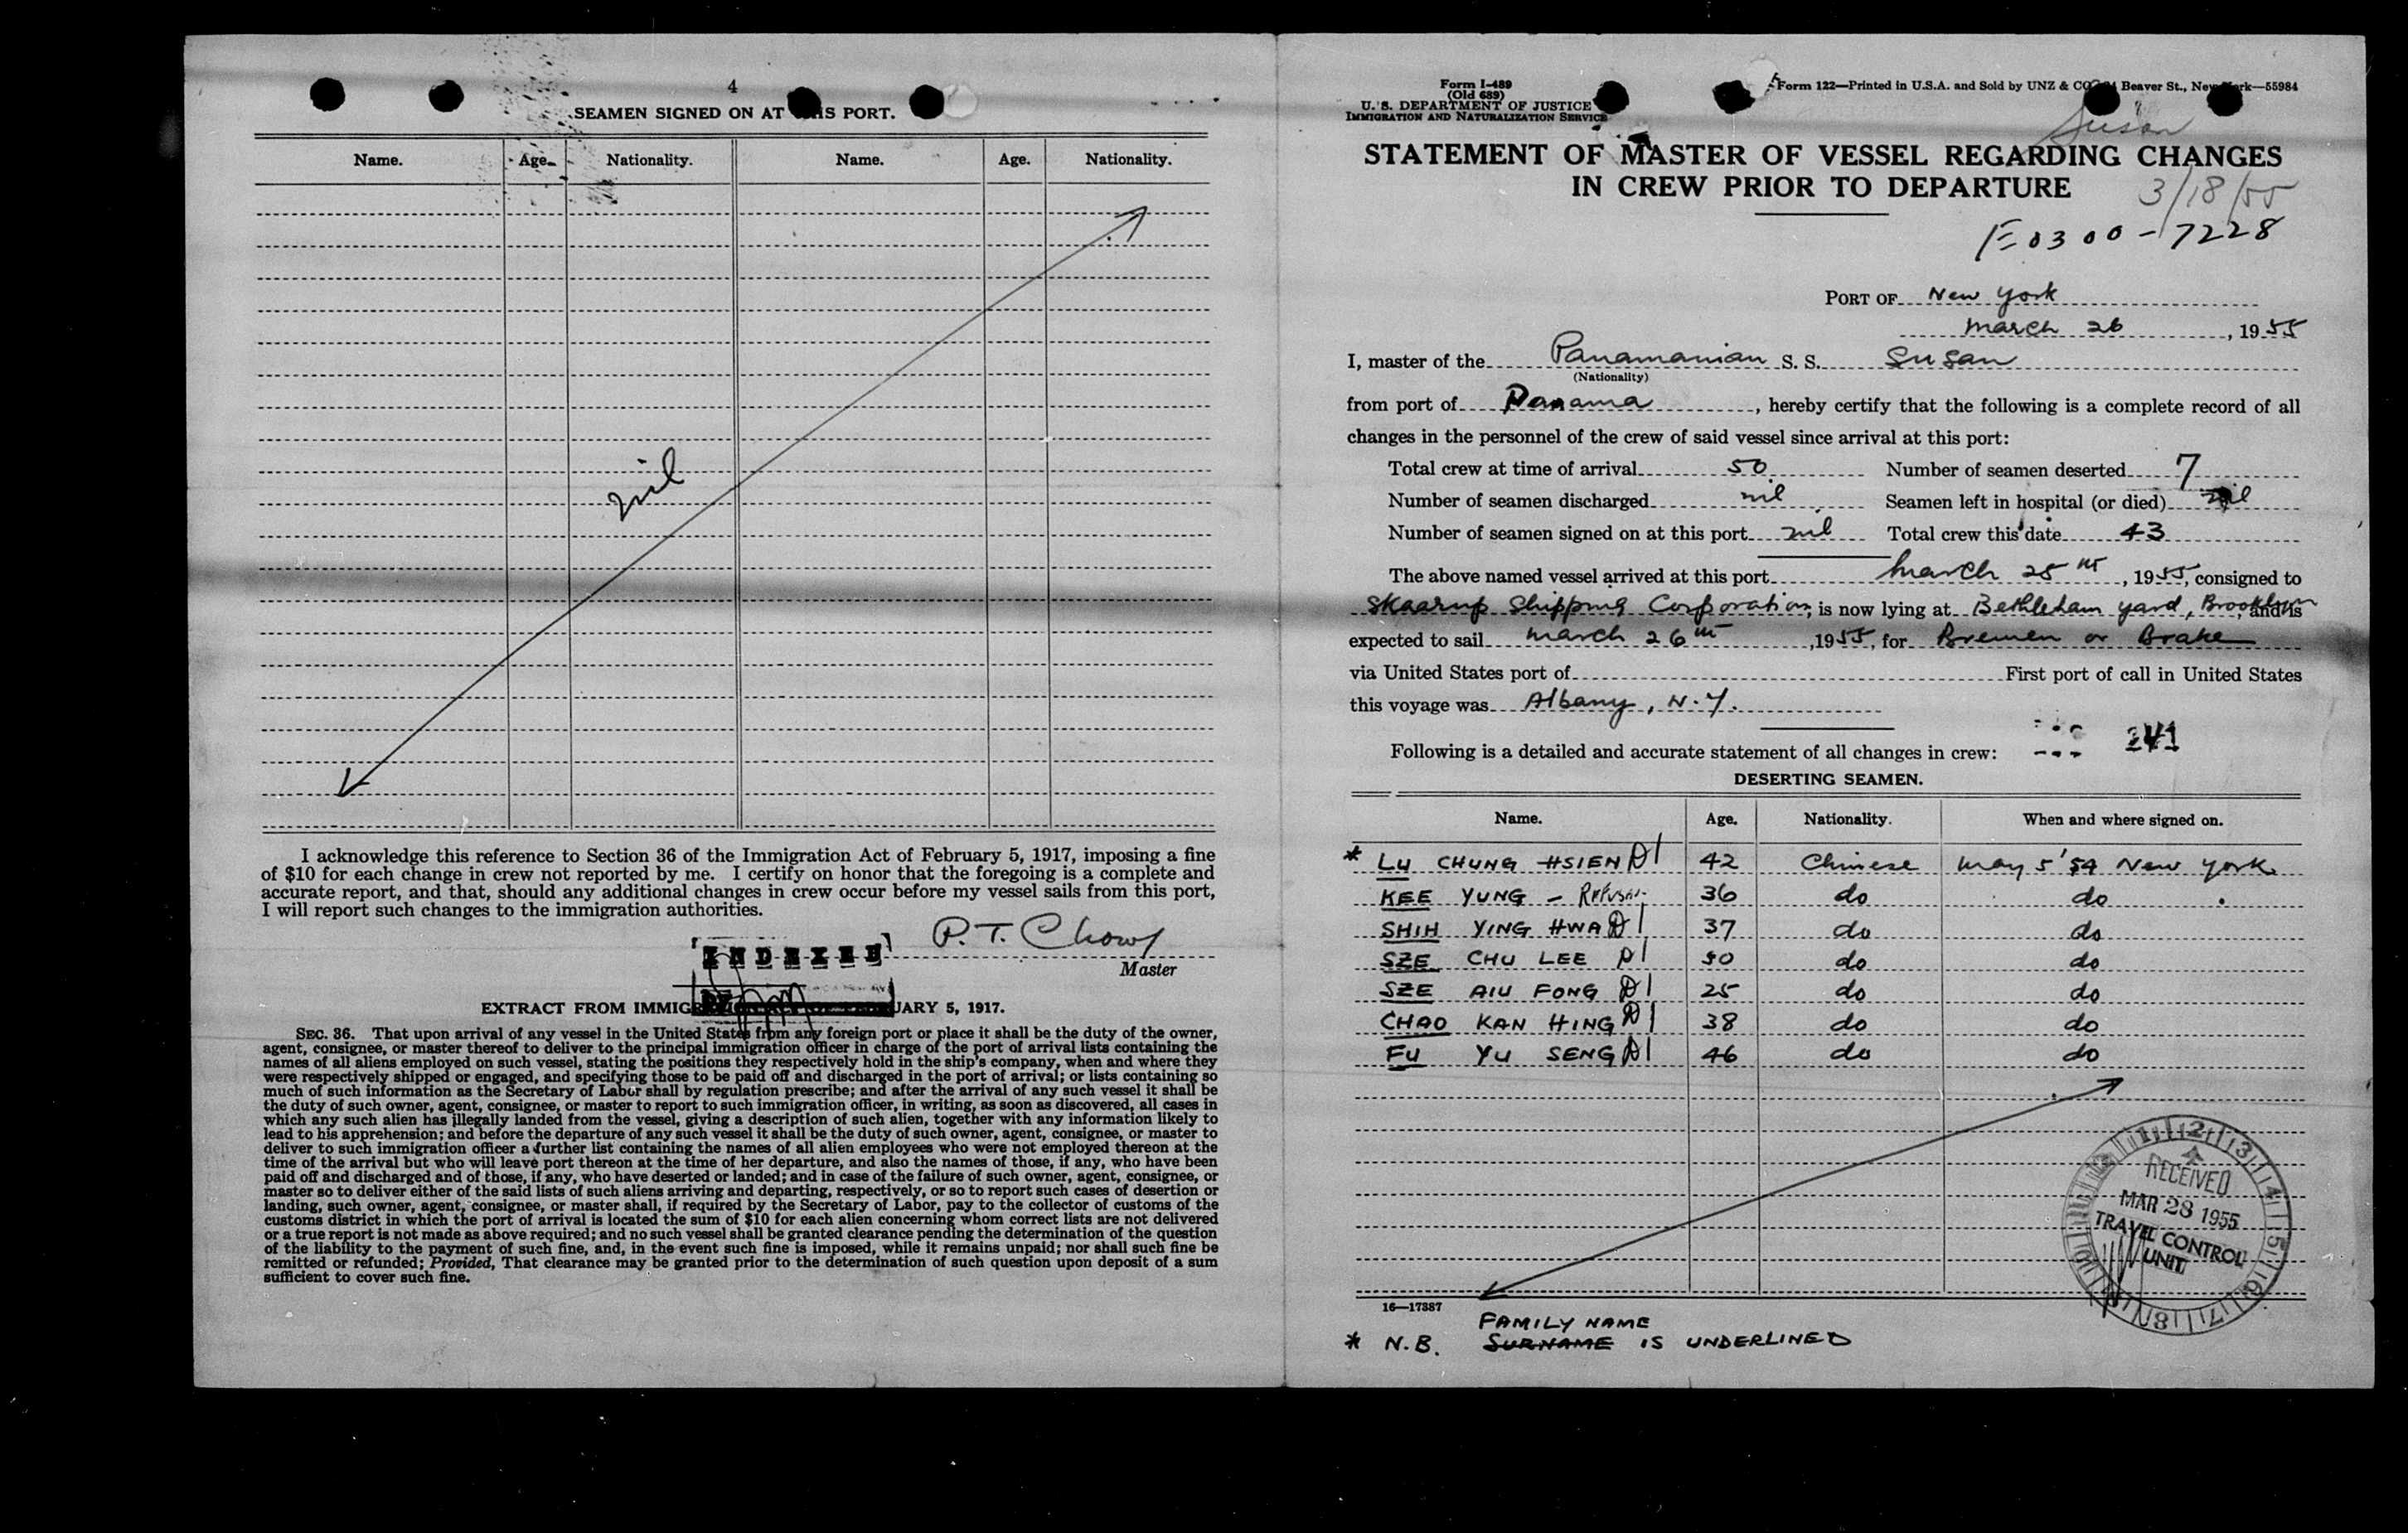 4
SEAMEN SIGNED ON AT THIS PORT.
Name. Age. Nationality. Name. Age. Nationality.
nil
I acknowledge this reference to Section 36 of the Immigration Act of February 5, 1917, imposing a fine
of $10 for each change in crew not reported by me. I certify on honor that the foregoing is a complete and
accurate report, and that, should any additional changes in crew occur before my vessel sails from this port,
I will report such changes to the immigration authorities.
P. T. Chow
INDEXED
Master
EXTRACT FROM IMMIGRATION ACT OF FEBRUARY 5, 1917.
SEC. 36. That upon arrival of any vessel in the United States from any foreign port or place it shall be the duty of the owner,
agent, consignee, or master thereof to deliver to the principal immigration officer in charge of the port of arrival lists containing the
names of all aliens employed on such vessel, stating the positions they respectively hold in the ship's company, when and where they
were respectively shipped or engaged, and specifying those to be paid off and discharged in the port of arrival; or lists containing so
much of such information as the Secretary of Labor shall by regulation prescribe; and after the arrival of any such vessel it shall be
the duty of such owner, agent, consignee, or master to report to such immigration officer, in writing, as soon as discovered, all cases in
which any such alien has illegally landed from the vessel, giving a description of such alien, together with any information likely to
lead to his apprehension; and before the departure of any such vessel it shall be the duty of such owner, agent, consignee, or master to
deliver to such immigration officer a further list containing the names of all alien employees who were not employed thereon at the
time of the arrival but who will leave port thereon at the time of her departure, and also the names of those, if any, who have been
paid off and discharged and of those, if any, who have deserted or landed; and in case of the failure of such owner, agent, consignee, or
master so to deliver either of the said lists of such aliens arriving and departing, respectively, or so to report such cases of desertion or
landing, such owner, agent, consignee, or master shall, if required by the Secretary of Labor, pay to the collector of customs of the
customs district in which the port of arrival is located the sum of $10 for each alien concerning whom correct lists are not delivered
or a true report is not made as above required; and no such vessel shall be granted clearance pending the determination of the question
of the liability to the payment of such fine, and, in the event such fine is imposed, while it remains unpaid; nor shall such fine be
remitted or refunded; Provided, That clearance may be granted prior to the determination of such question upon deposit of a sum
sufficient to cover such fine.
Form I-489
(Old 689)
U. S. DEPARTMENT OF JUSTICE
IMMIGRATION AND NATURALIZATION SERVICE
Form 122—Printed in U.S.A. and Sold by UNZ & CO. Beaver St., New York—55984
Susan
STATEMENT OF MASTER OF VESSEL REGARDING CHANGES
IN CREW PRIOR TO DEPARTURE
3/18/55
E0300-7228
PORT OF New York
March 26, 1955
I, master of the Panamanian S. S. Susan
(Nationality)
from port of Panama, hereby certify that the following is a complete record of all
changes in the personnel of the crew of said vessel since arrival at this port:
Total crew at time of arrival 50 Number of seamen deserted 7
Number of seamen discharged nil Seamen left in hospital (or died) nil
Number of seamen signed on at this port nil Total crew this date 43
The above named vessel arrived at this port March 25th, 1955, consigned to
Skaarup Shipping Corporation, is now lying at Bethleham yard, Brooklyn, and is
expected to sail March 26th, 1955, for Bremen or Brake
via United States port of First port of call in United States
this voyage was Albany, N.Y.
241
Following is a detailed and accurate statement of all changes in crew:
DESERTING SEAMEN.
Name. Age. Nationality. When and where signed on.
* LU CHUNG HSIEN D1 42 Chinese May 5 '54 New York
KEE YUNG – 36 do do
SHIH YING HWA D1 37 do do
SZE CHU LEE D1 50 do do
SZE AIU FONG D1 25 do do
CHAO KAN HING D1 38 do do
FU YU SENG D1 46 do do
RECEIVED
MAR 28 1955
TRAVEL CONTROL
UNIT
16—17387
FAMILY NAME
* N.B. SURNAME IS UNDERLINED